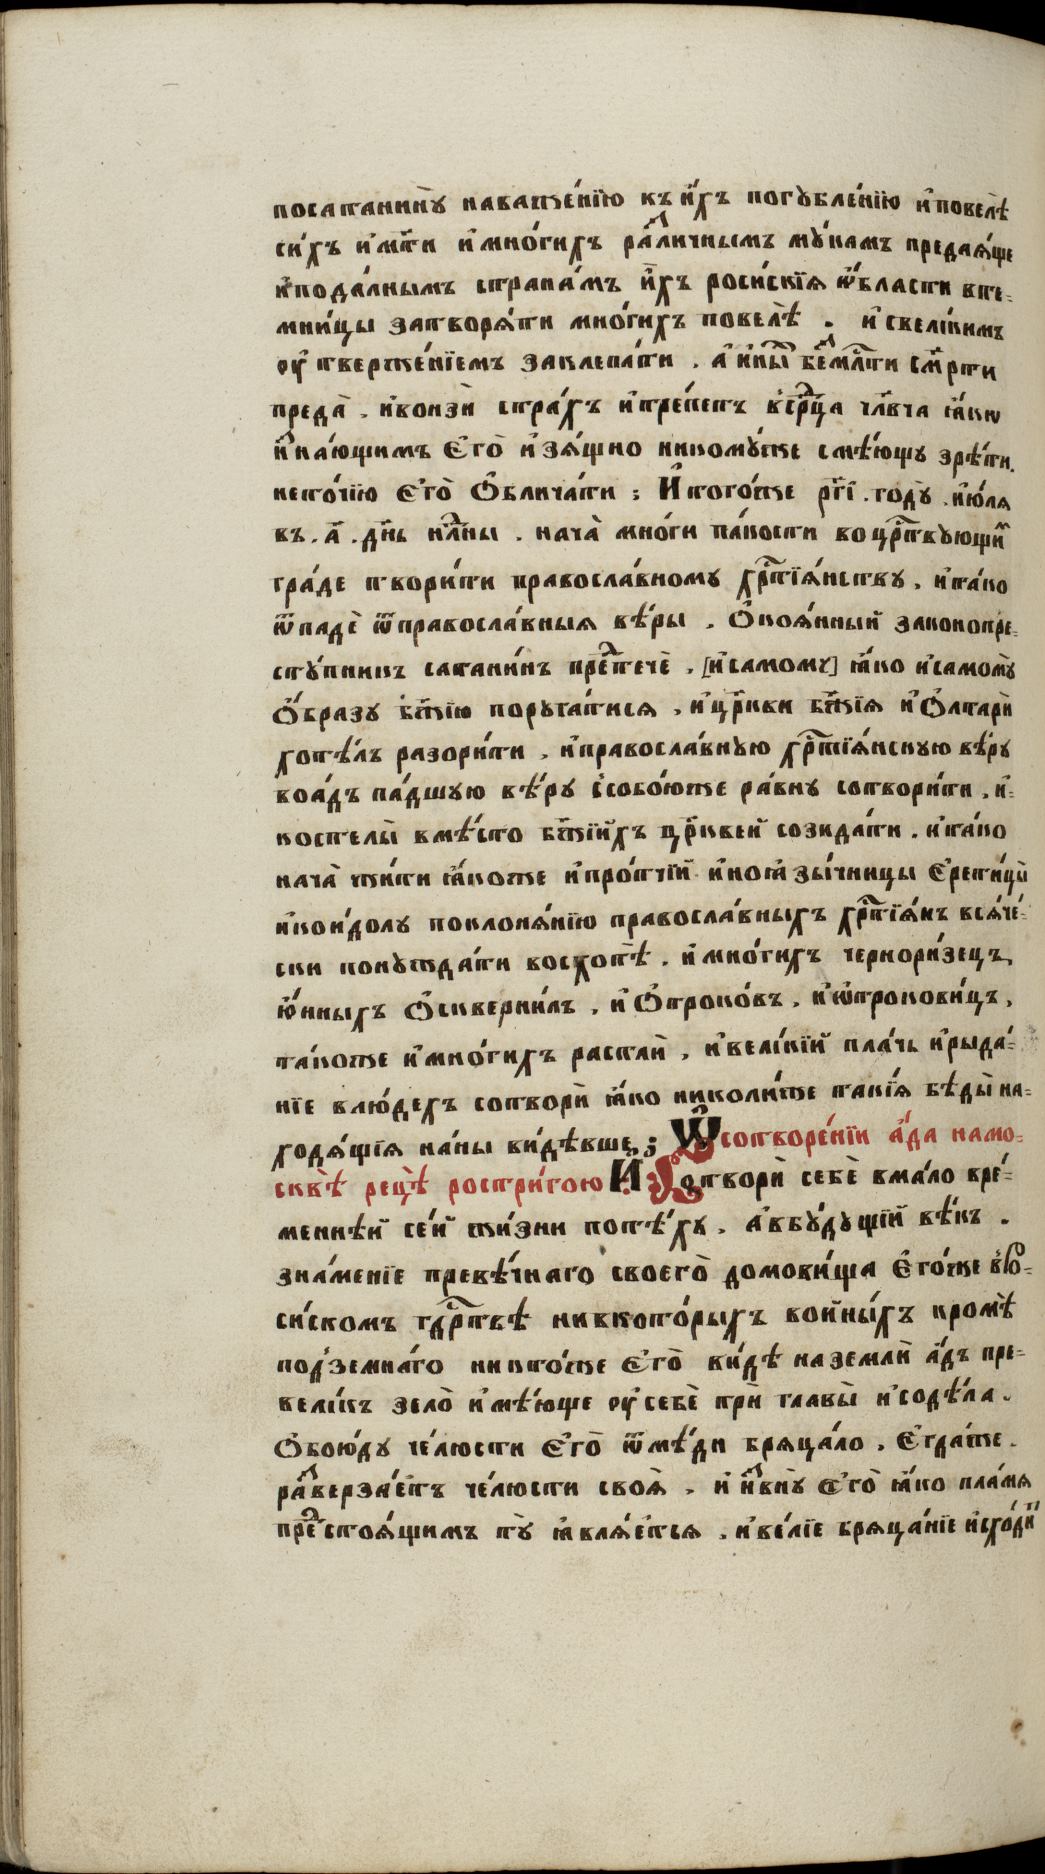 посатанинꙋ наважде́нїю къ и҆́хъ погꙋбле́нїю и҆повелѣ̀
си́хъ и҆мꙗ́ти и҆мно́гихъ ра́зⷥличнымъ мꙋ́камъ предаѧ́ше
и҆подалнымъ страна́мъ и҆́хъ роси́скїѧ ѡ҆́бласти вте-
мни́цы затворѧ́ти мно́гихъ повелѣ̀ . и҆свели́кимъ
ᲂу҆тверже́нїемъ заклепа́ти . а҆и҆ны́хⷯ беⷥми́лⷭ҇ти сме́рти
преда̀ . и҆вонзѝ страⷯхъ и҆тре́петъ в̾срⷣца члв҃ча ꙗ҆́кѡ
и҆каю́щимъ є҆го̀ и҆зѧ́щно никомꙋ́же смѣ́ющꙋ зрѣ́ти .
нето́чїю є҆го̀ ѻ҆блича́ти ; И҆того́же рг҃і . годꙋ̀ . и҆ю́лѧ
въ . а҃ . дн҃ь нлⷣѣны . нача̀ мно́ги па́кости во црⷭ҇твꙋющиⷨ
гра́де твори́ти православному хрⷭ҇тїѧ́нствꙋ , и҆та́ко
ѿпадѐ ѿправосла́вныѧ вѣ́ры . Ѻ҆коѧ́нный законопре-
стꙋ́пникъ сатани́нъ прⷣете́че . [и҆самомꙋ] ꙗ҆́ко и҆самомꙋ̀
Ѻ҆́бразꙋ бж҃їю порꙋга́тисѧ , и҆цр҃кви бж҃їѧ и҆Ѻ҆лтарѝ
хотѣ́лъ разори́ти . и҆православнꙋю хрⷭ҇тїѧ́нскꙋю вѣ́рꙋ
воа́дъ па́дшꙋю вѣ́рꙋ ссобо́юже ра́внꙋ сотвори́ти . и҆-
костелы̀ вмѣ́сто бж҃їихъ цр҃квей созида́ти . и҆та́ко
нача̀ жи́ти ꙗ҆́коже и҆про́тчїи и҆ноѧзы́чницы є҆рети́цы
и҆кои҆́долꙋ поклонѧ́нїю православныхъ хрⷭ҇тїѧ́нъ всѧ́че-
ски понꙋжда́ти восхотѣ̀ . и҆мно́гихъ чернори́зецъ
ю҆́нныхъ Ѻ҆скверни́лъ , и҆Ѻ҆троко́въ , и҆ѡ҆трокови́цъ ,
та́коже и҆мно́гихъ растлѝ , и҆вели́кїй пла́чь и҆рыда́-
нїе влю́дехъ сотворѝ ꙗ҆́ко николи́же таки́ѧ бѣ́ды на-
ходѧ́щїѧ на́ны ви́дѣвше ; Ѡ҆сотворе́нїи а҆́да намо-
сквѣ̀ рецѣ̀ ростри́гою И҆Сотворѝ себѐ вма́ло вре́-
меннѣй се́й жи́зни потѣ́хꙋ . а҆вбꙋ́дꙋщїй вѣ́къ .
зна́менїе превѣ́чнаго своего̀ домови́ща є҆го́же вро-
си́скомъ гдⷭ҇рствѣ нивкото́рыхъ войны́хъ кромѣ̀
под̾земна́го никто́же є҆го̀ ви́дѣ наземлѝ а҆́дъ пре-
вели́къ зело̀ и҆мѣ́юще ᲂу҆себѐ трѝ главы̀ и҆содѣ́ла .
Ѻ҆бою́дꙋ че́люсти є҆го̀ ѿмѣ́ди брѧца́ло . є҆гда́же .
раⷥверза́етъ че́люсти своѧ̀ . и҆и҆звнꙋ̀ є҆го̀ ꙗ҆́ко пла́мѧ
преⷣстоѧ́щимъ тꙋ̀ ꙗ҆влѧ́етсѧ . и҆ве́лїе брѧца́нїе и҆схо́диⷮ